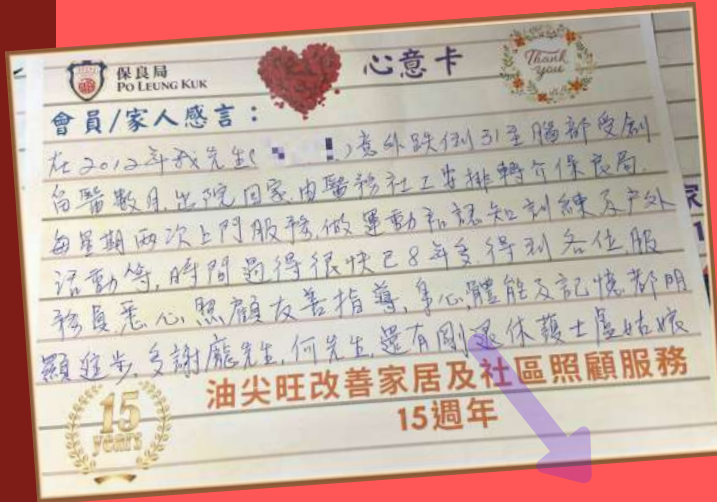 保良局
PO LEUNG KUK
心意卡
Thank you
會員/家人感言：
在2012年我先生( )意外跌倒引至腦部受創
留醫數月.出院回家.由醫務社工安排轉介保良局.
每星期兩次上門服務.做運動和認知訓練及户外
活動等,時間過得很快已8年多.得到各位服
務員悉心照顧友善指導,身心,體能及記憶都明
顯進步.多謝龐先生,何先生,還有剛退休護士盧姑娘
油尖旺改善家居及社區照顧服務
15週年
15
years